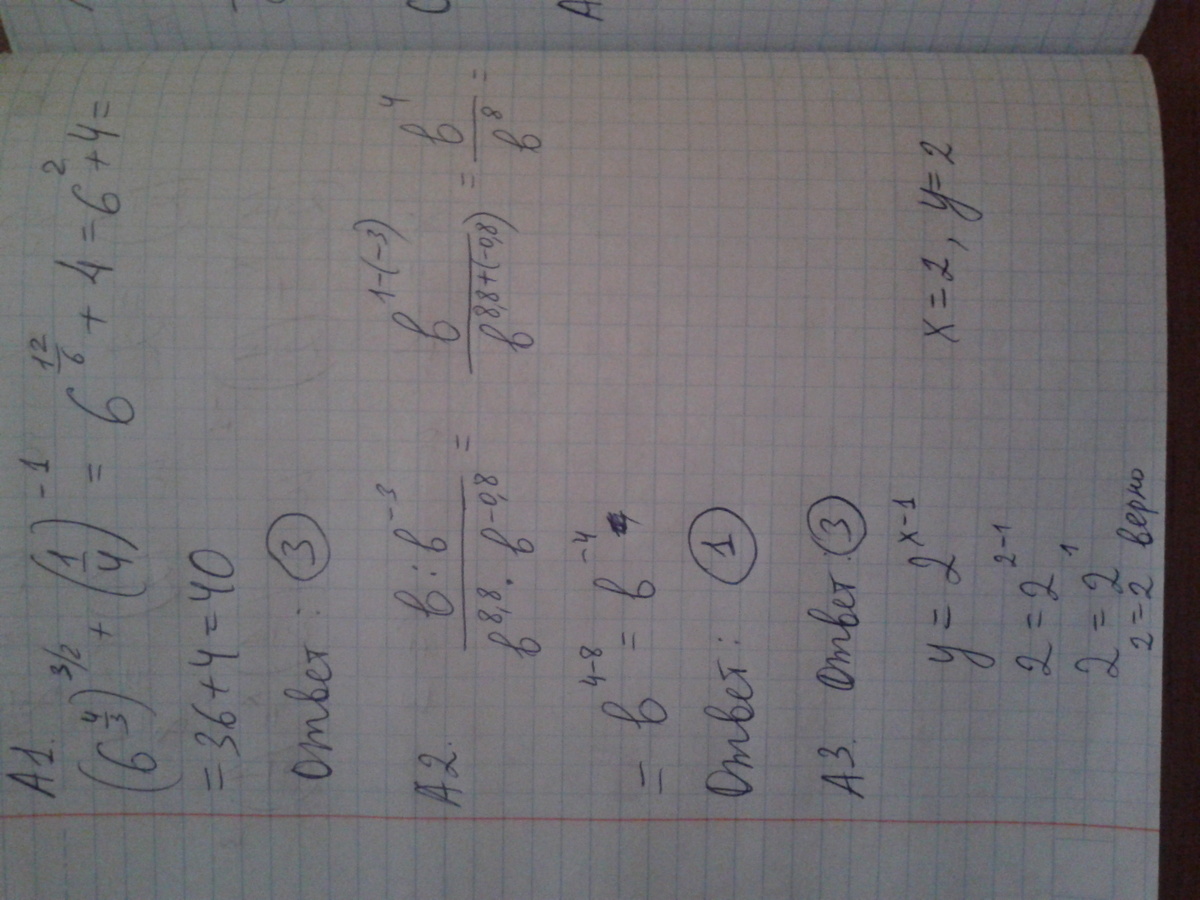 A1.
(6^{4/3})^{3/2} + (1/4)^{-1} = 6^{12/6} + 4 = 6^2 + 4 =
= 36 + 4 = 40
Ответ: ③
A2. (b : b^{-3})/(b^{8,8} · b^{-0,8}) = b^{1-(-3)}/b^{8,8+(-0,8)} = b^4/b^8 =
= b^{4-8} = b^{-4}
Ответ: ①
A3. Ответ: ③
y = 2^{x-1} x = 2, y = 2
2 = 2^{2-1}
2 = 2^1
2 = 2 верно